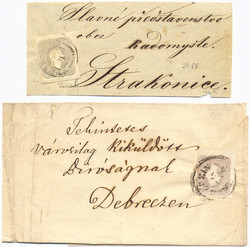 Slavné představenstvo
obce
Radomyšle.
Strakonice.
Tekintetes
Városilag Kiküldött
Biróságnak
Debreczen